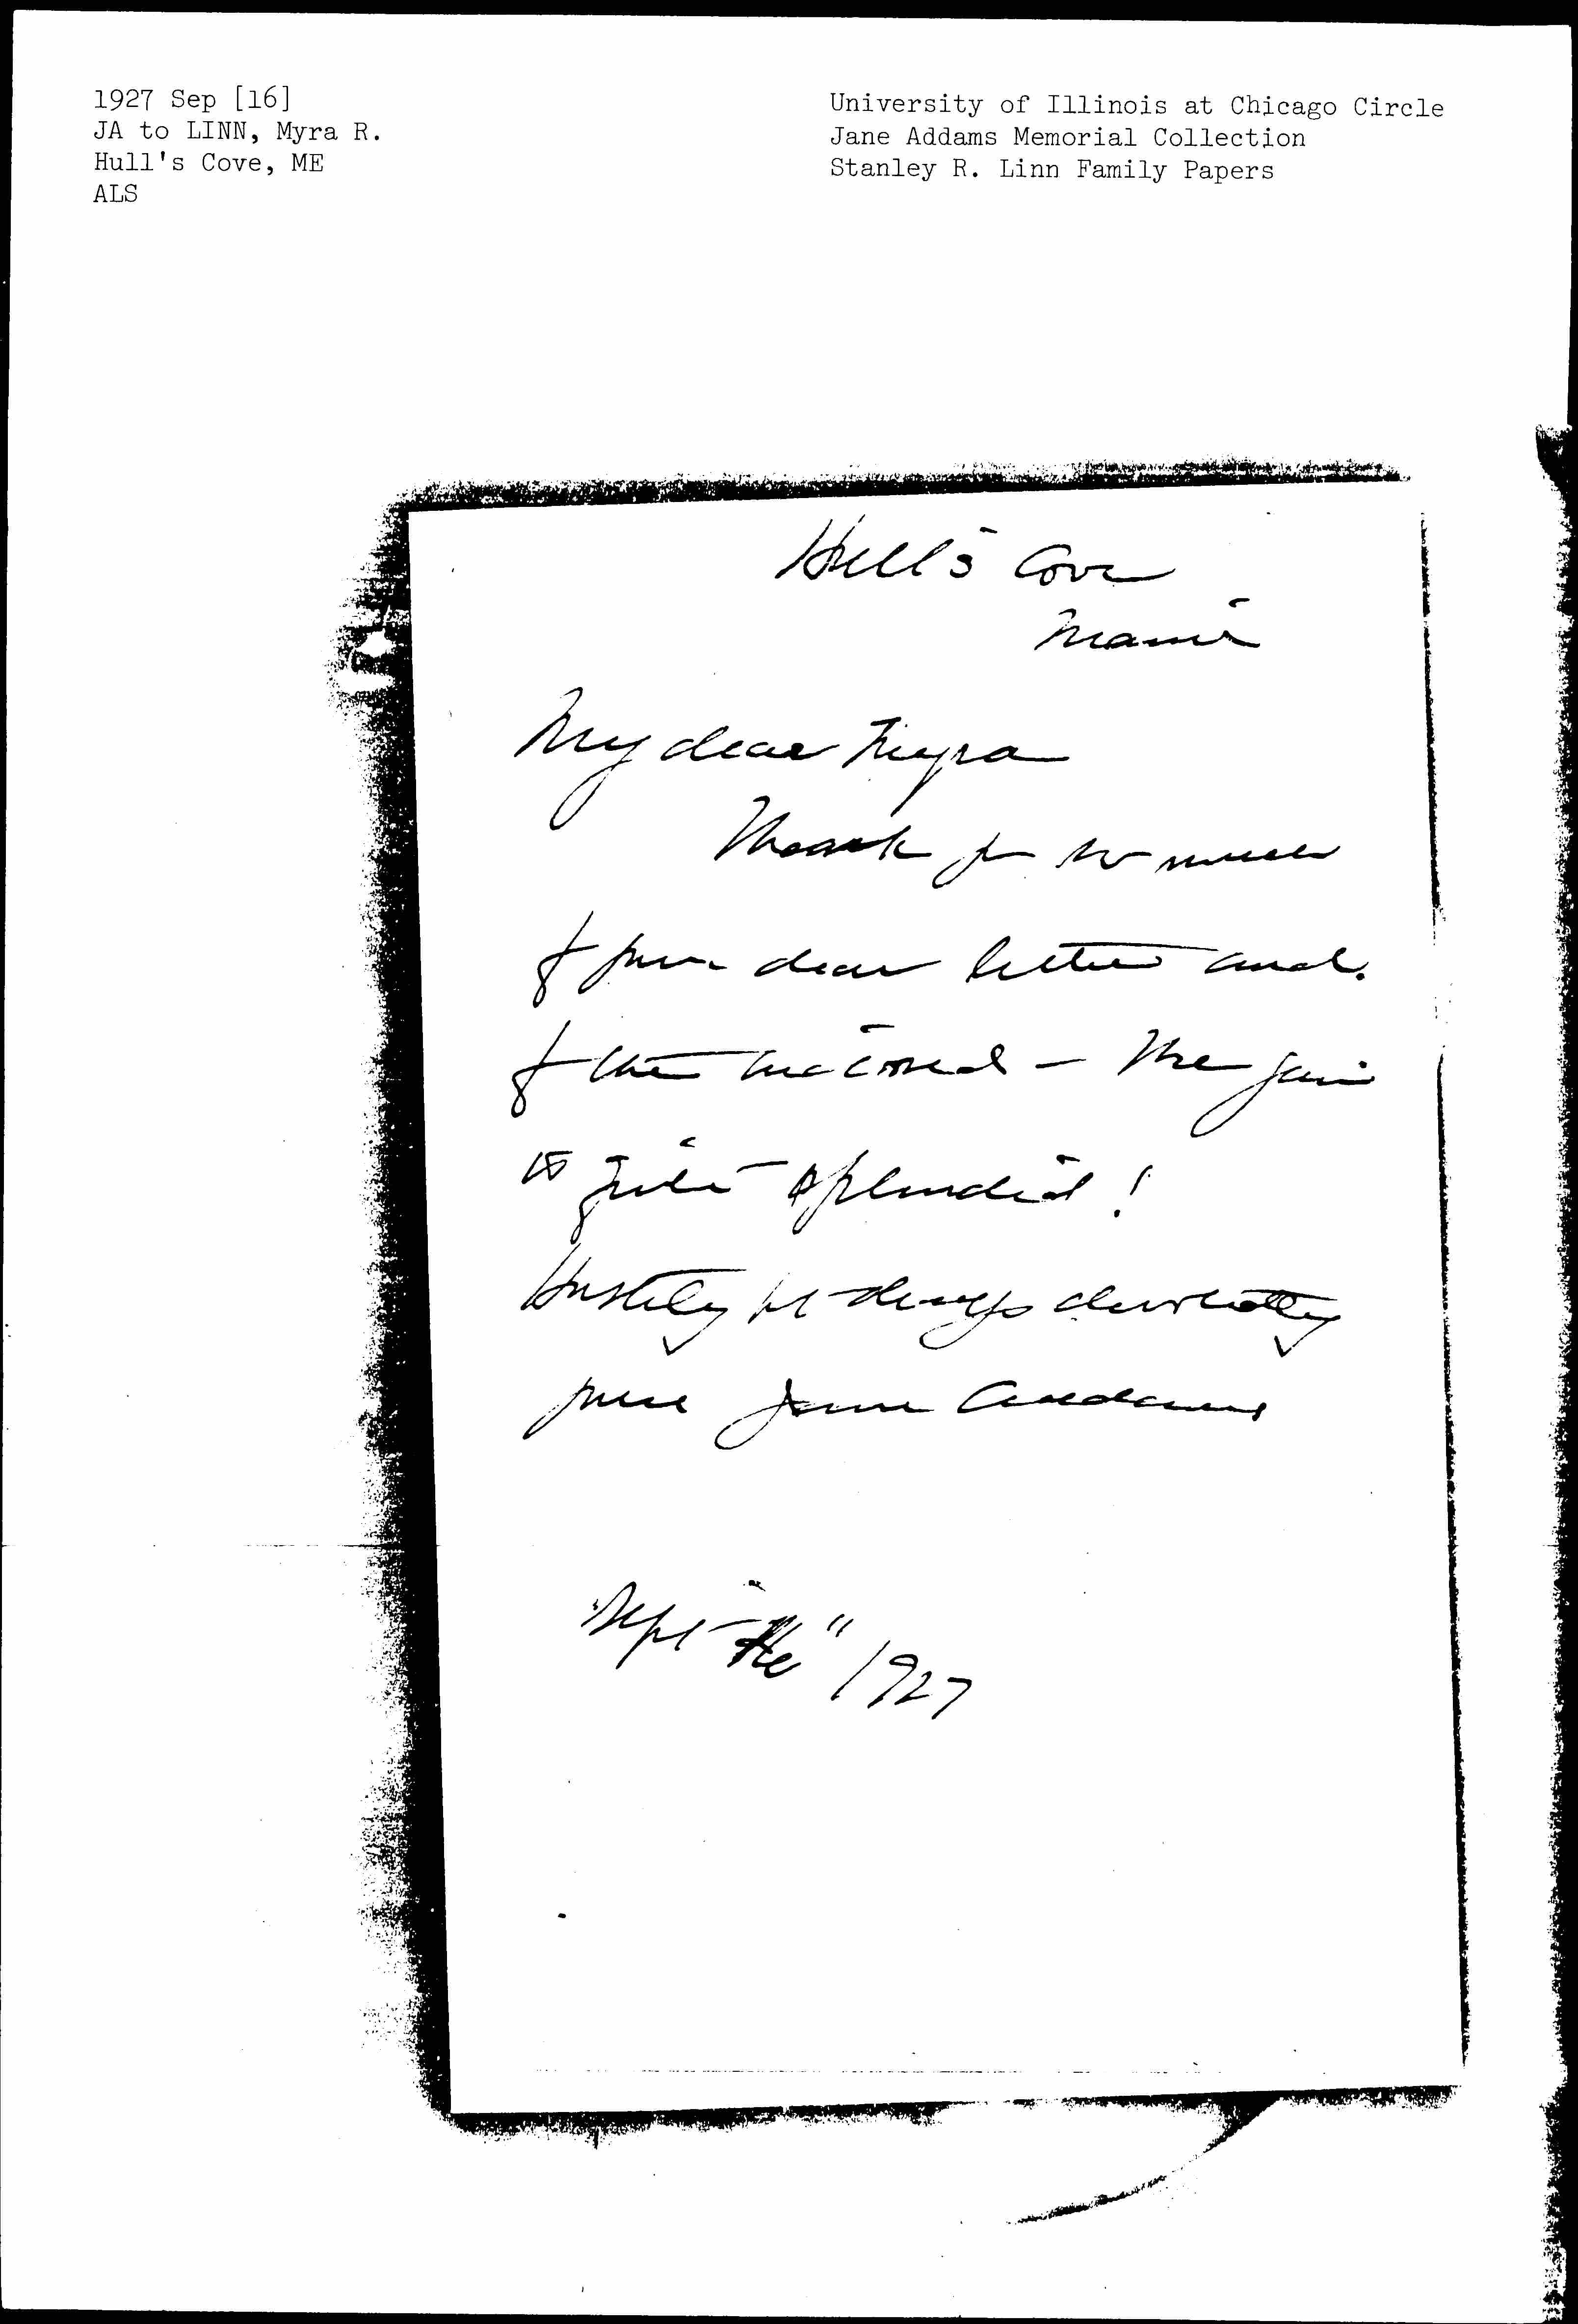 1927 Sep [16]
JA to LINN, Myra R.
Hull's Cove, ME
ALS
University of Illinois at Chicago Circle
Jane Addams Memorial Collection
Stanley R. Linn Family Papers
Hull's Cove
Maine
My dear Myra
Thank you so much
for your dear letter and
for the enclosed - The
is quite splendid!
Hastily but always devotedly
yours Jane Addams
Sept 1927